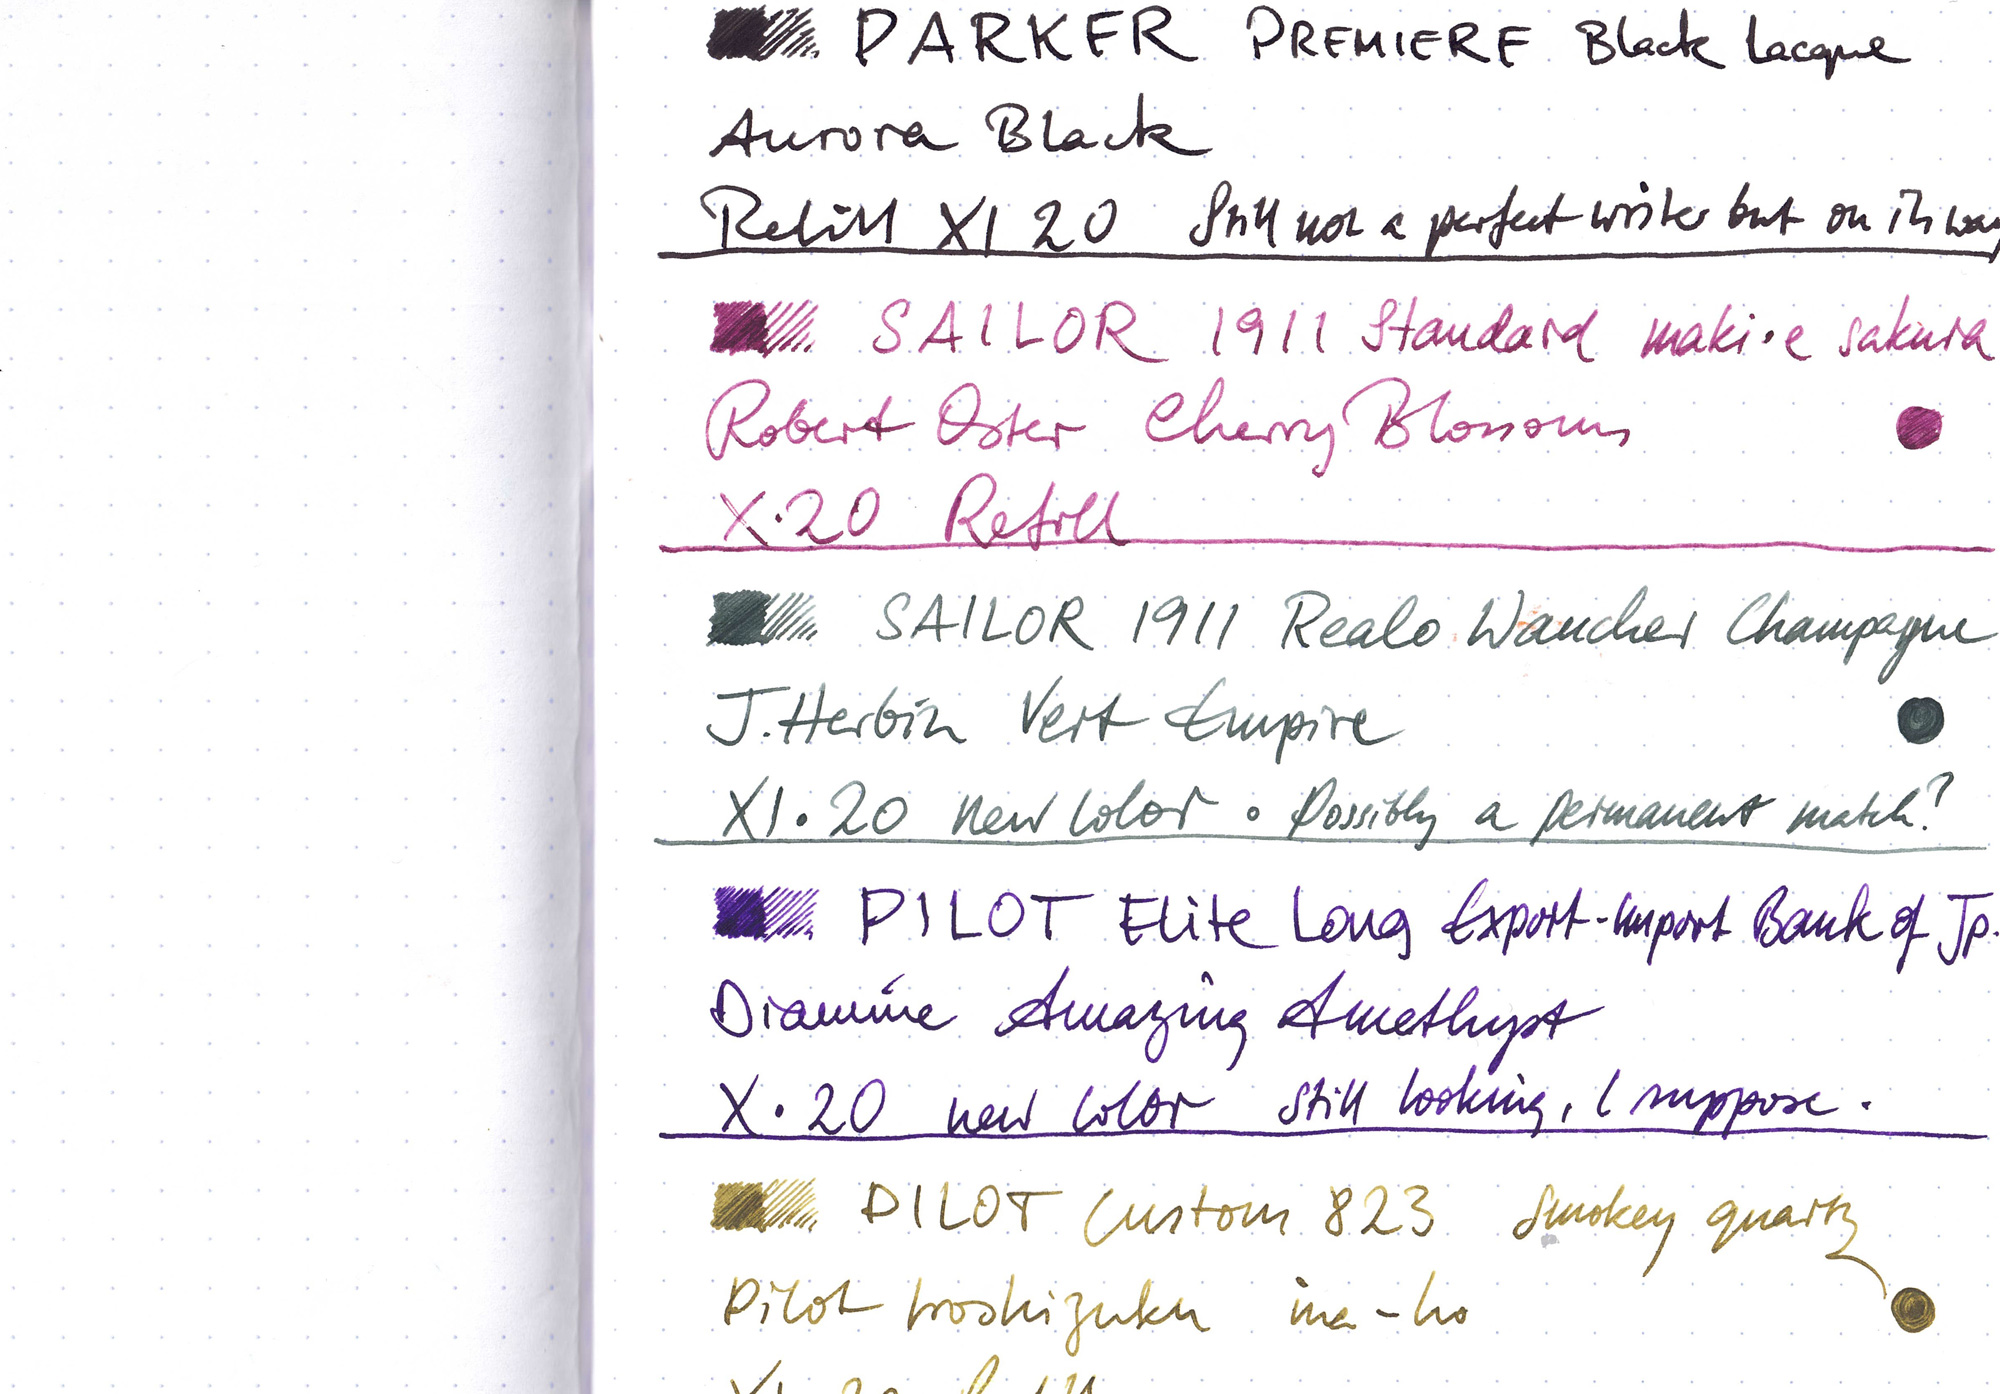 PARKER PREMIERE Black Lacque
Aurora Black
Refill XI 20 Still not a perfect writer but on its way
SAILOR 1911 Standard maki·e sakura
Robert Oster Cherry Blossoms
X·20 Refill
SAILOR 1911 Realo Wancher Champagne
J.Herbin Vert Empire
XI·20 new color · Possibly a permanent match?
PILOT Elite Long Export-Import Bank of Jp.
Diamine Amazing Amethyst
X·20 new color still looking, I suppose.
PILOT Custom 823 Smokey quartz
Pilot Iroshizuku ina-ho
XI 20 Refill